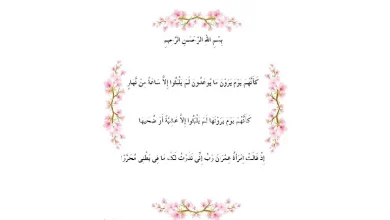 بِسْمِ اللهِ الرَّحْمَنِ الرَّحِيمِ
كَأَنَّهُمْ يَوْمَ يَرَوْنَ مَا يُوعَدُونَ لَمْ يَلْبَثُوا إِلاَّ سَاعَةً مِنْ نَهَارٍ
كَأَنَّهُمْ يَوْمَ يَرَوْنَهَا لَمْ يَلْبَثُوا إِلاَّ عَشِيَّةً أَوْ ضُحَيهَا
إِذْ قَالَتْ امْرَأَةُ عِمْرَنَ رَبِّ إِنِّي نَذَرْتُ لَكَ مَا فِي بَطْنِي مُحَرَّرًا